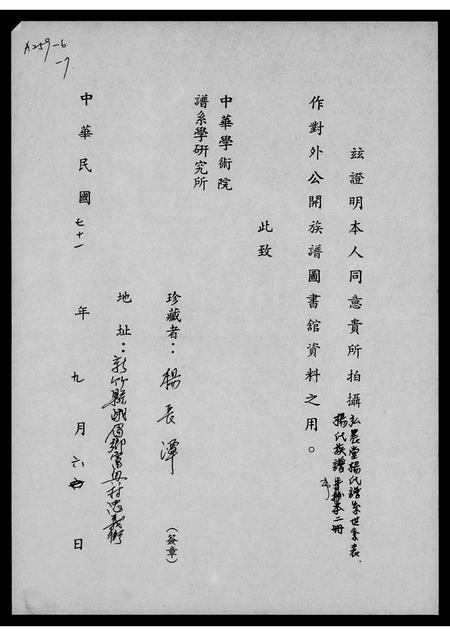 A259-6
-7
茲證明本人同意貴所拍攝弘農堂楊氏譜系世系表.
楊氏族譜手抄本二冊
作對外公開族譜圖書舘資料之用。
此致
中華學術院
譜系學研究所
珍藏者：楊長潭（簽章）
地址：新竹縣 鄉 村忠義街
中華民國七十一年九月六日